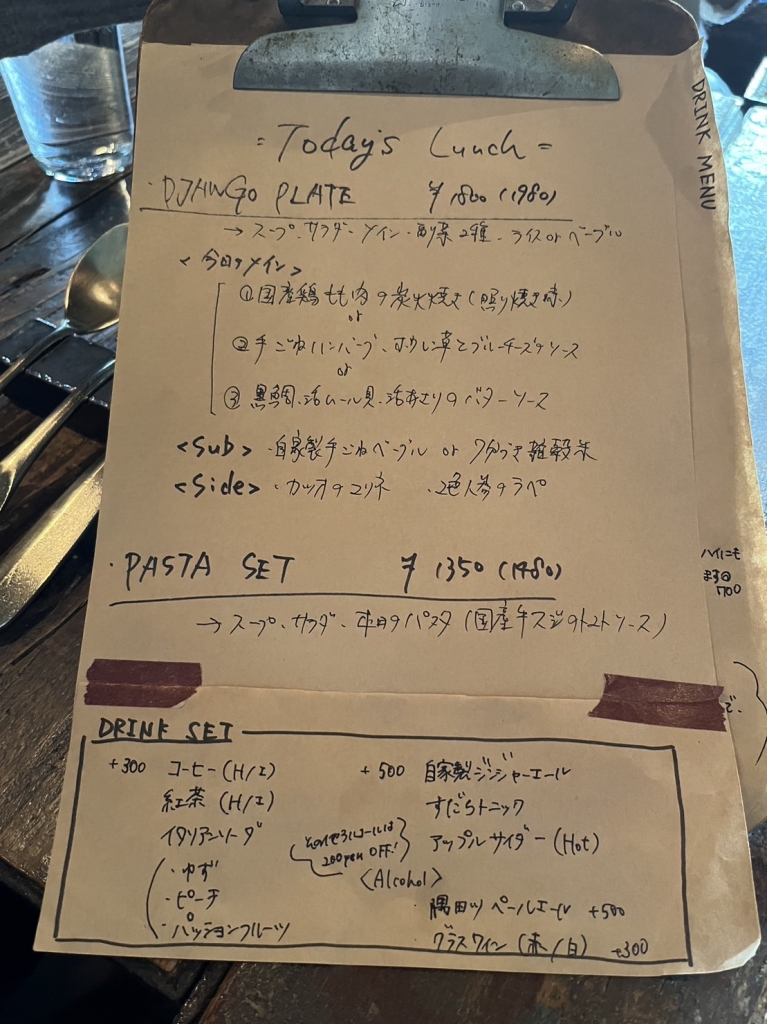 = Today's Lunch =
DRINK MENU
・DJANGO PLATE ¥1800 (1980)
→ スープ、サラダ・メイン・副菜2種・ライス or ベーグル
<今日のメイン>
①国産鶏もも肉の炭火焼き(照り焼き味)
or
②手ごねハンバーグ、ホウレン草とブルーチーズのソース
or
③黒鯛、活ムール貝、活あさりのバターソース
<Sub> ・自家製手ごねベーグル or 7分づき雑穀米
<Side> ・カツオの ・2色人参のラペ
・PASTA SET ¥1350 (1480)
→ スープ、サラダ、本日のパスタ (国産牛スジのトマトソース)
700
で、
DRINK SET
+300 コーヒー (H/I)
紅茶 (H/I)
イタリアンソーダ
・ゆず
・ピーチ
・パッションフルーツ
その他アルコールは
200yen OFF!
+500 自家製ジンジャーエール
すだちトニック
アップルサイダー (Hot)
<Alcohol>
・隅田川 ペールエール +500
・グラスワイン (赤/白) +300